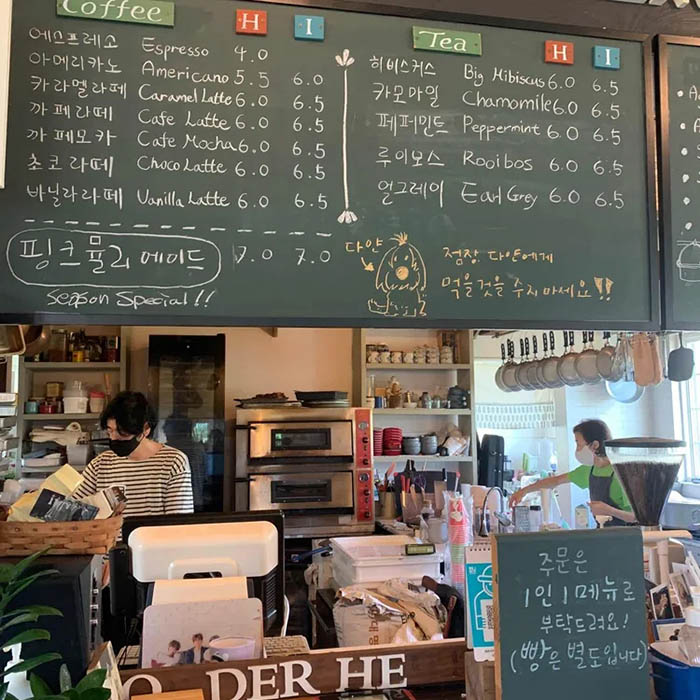 Coffee H I
에스프레소 Espresso 4.0
아메리카노 Americano 5.5 6.0
카라멜라떼 Caramel Latte 6.0 6.5
까페라떼 Cafe Latte 6.0 6.5
까페모카 Cafe Mocha 6.0 6.5
초코라떼 Choco Latte 6.0 6.5
바닐라라떼 Vanilla Latte 6.0 6.5
핑크뮬리에이드 7.0 7.0
Season Special!!
Tea H I
히비스커스 Big Hibiscus 6.0 6.5
카모마일 Chamomile 6.0 6.5
페퍼민트 Peppermint 6.0 6.5
루이보스 Rooibos 6.0 6.5
얼그레이 Earl Grey 6.0 6.5
다얀
점장 다얀에게
먹을것을 주지마세요!!
주문은
1인 1메뉴로
부탁드려요!
(빵은 별도입니다)
DER HE